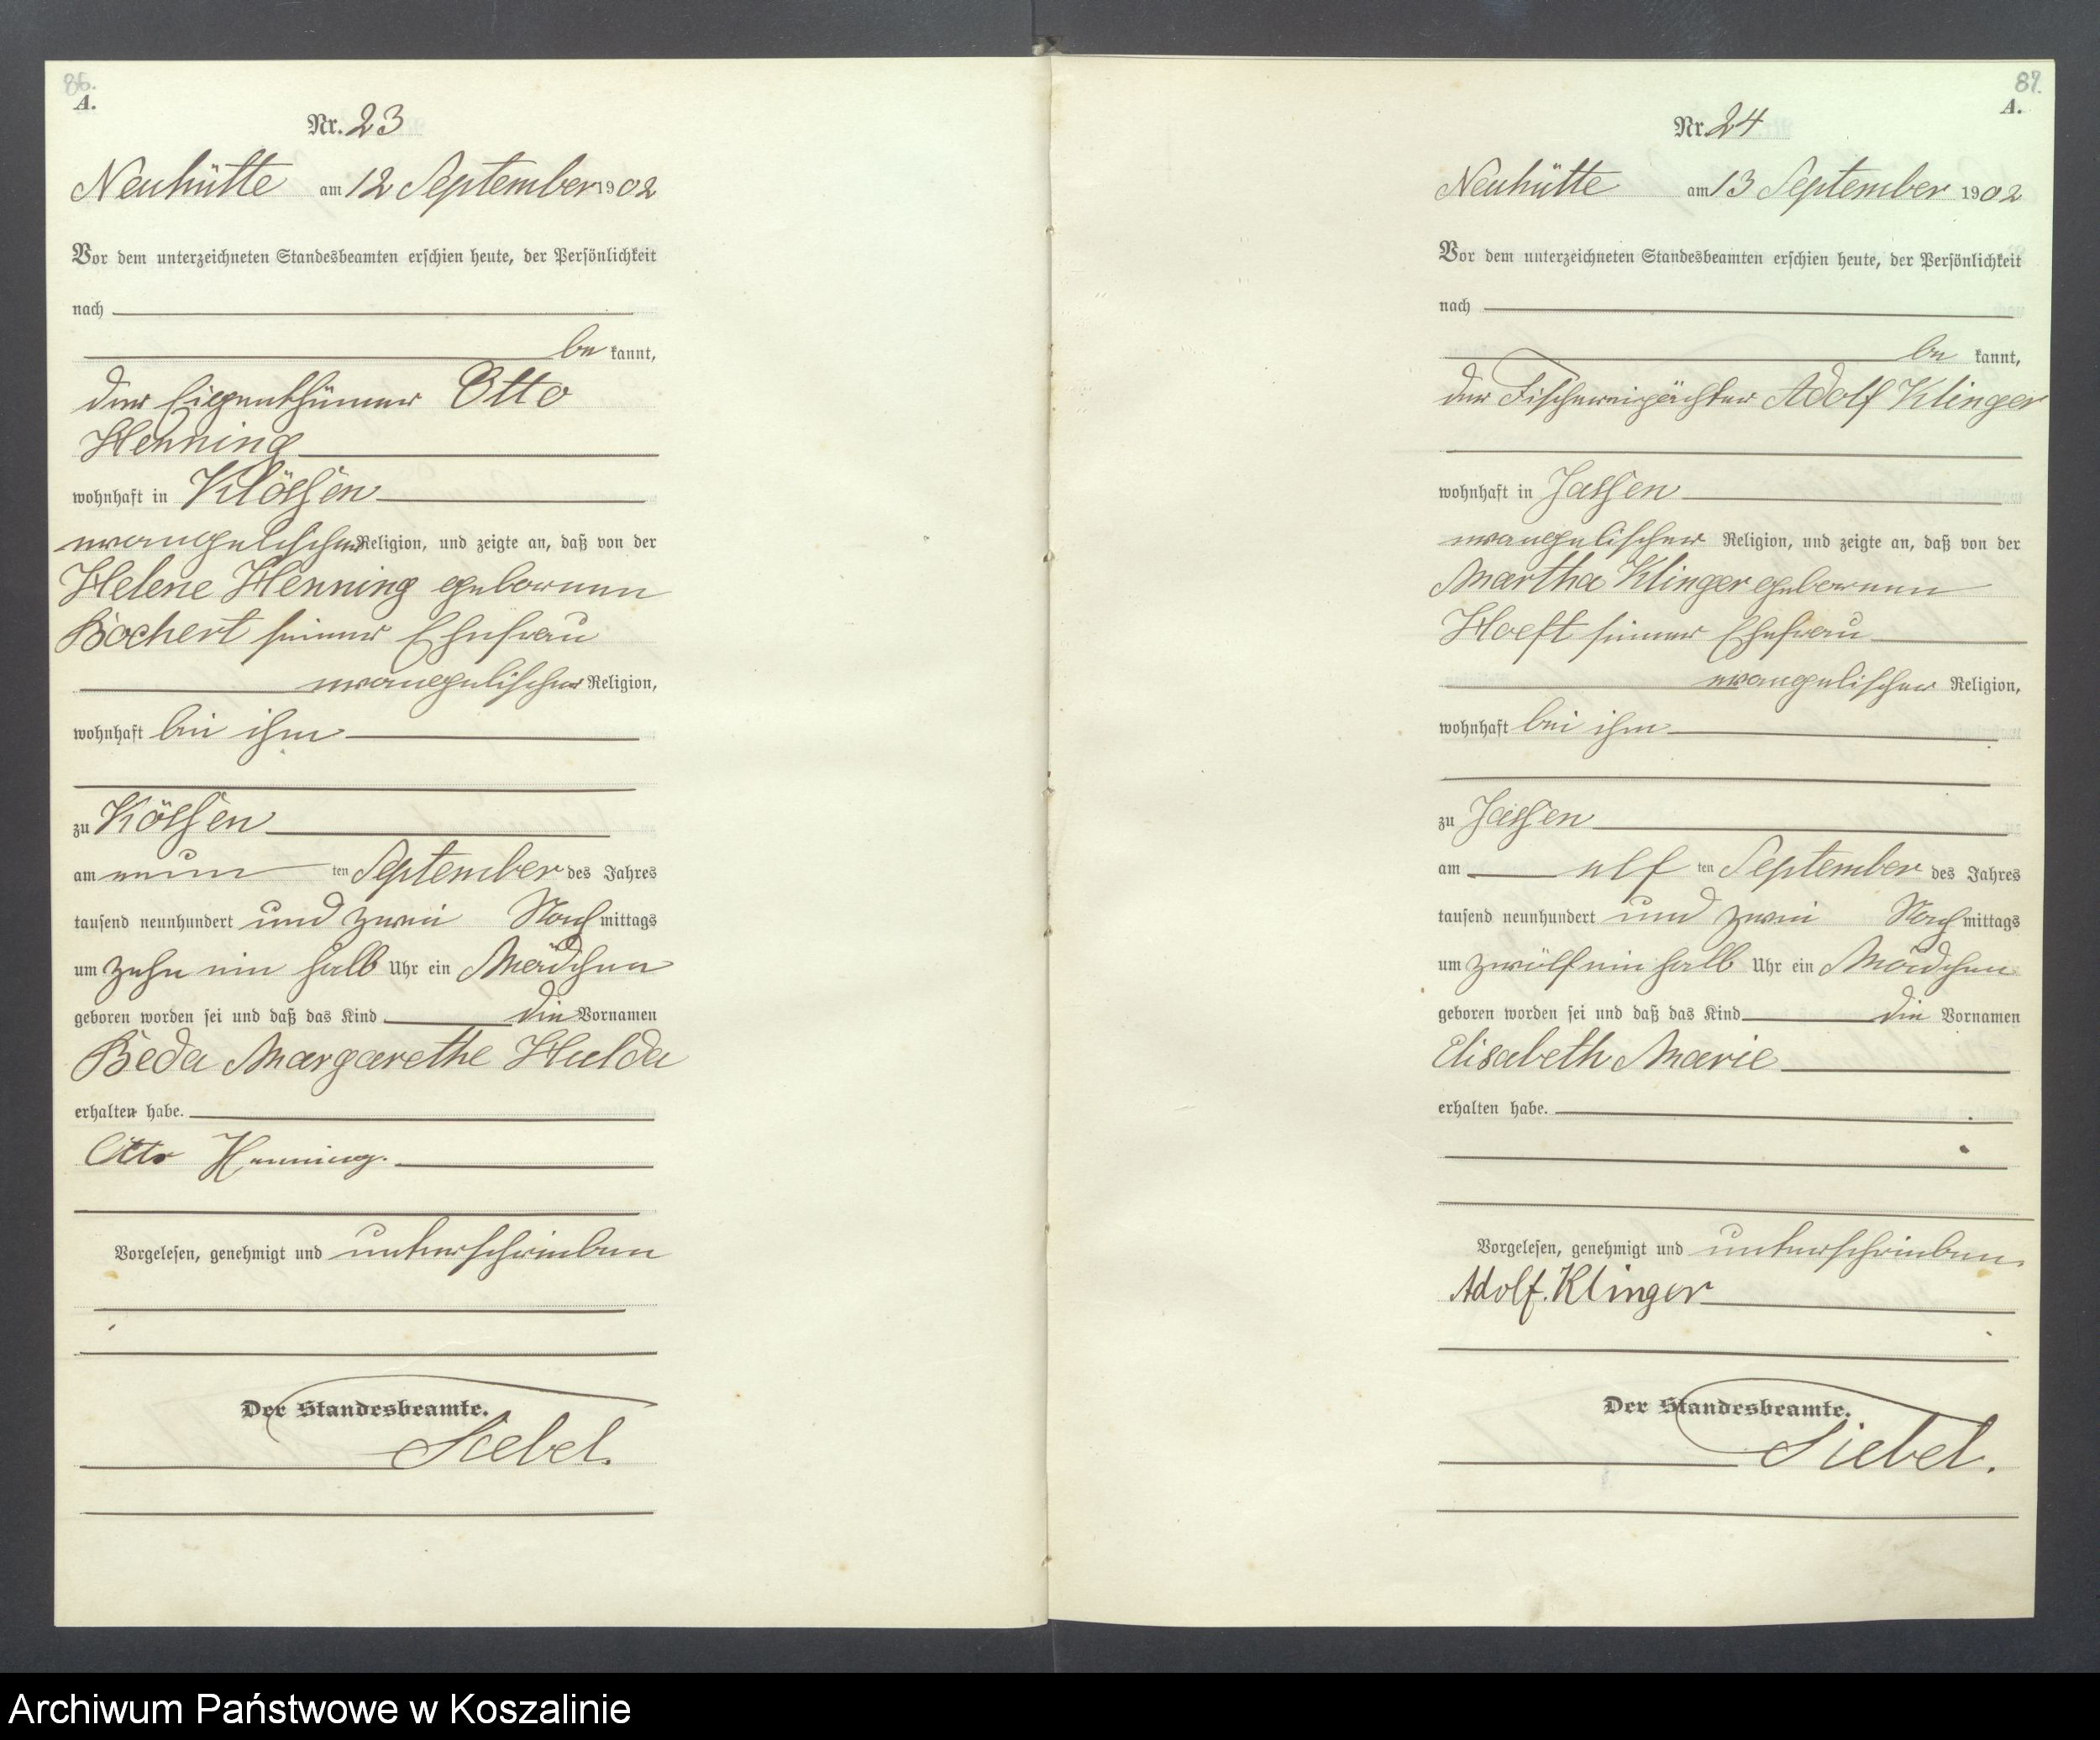 86.
A.
Nr. 23
Neuhütte am 12 September 1902
Vor dem unterzeichneten Standesbeamten erschien heute, der Persönlichkeit
nach
be kannt,
der Eigenthümer Otto
Henning
wohnhaft in Klößen
evangelischer Religion, und zeigte an, daß von der
Helene Henning geborenen
Bochert seiner Ehefrau
evangelischer Religion,
wohnhaft bei ihm
zu Kößen
am neun ten September des Jahres
tausend neunhundert und zwei Nach mittags
um zehn ein halb Uhr ein Mädchen
geboren worden sei und daß das Kind die Vornamen
Beda Margarethe Hulda
erhalten habe.
Otto Henning.
Vorgelesen, genehmigt und unterschrieben
Der Standesbeamte.
Siebel.
87.
A.
Nr. 24
Neuhütte am 13 September 1902
Vor dem unterzeichneten Standesbeamten erschien heute, der Persönlichkeit
nach
be kannt,
der Fischereipächter Adolf Klinger
wohnhaft in Jassen
evangelischer Religion, und zeigte an, daß von der
Martha Klinger geborenen
Hoeft seiner Ehefrau
evangelischer Religion,
wohnhaft bei ihm
zu Jassen
am elf ten September des Jahres
tausend neunhundert und zwei Nach mittags
um zwölf ein halb Uhr ein Mädchen
geboren worden sei und daß das Kind die Vornamen
Elisabeth Marie
erhalten habe.
Vorgelesen, genehmigt und unterschrieben.
Adolf. Klinger
Der Standesbeamte.
Siebel.
Archiwum Państwowe w Koszalinie